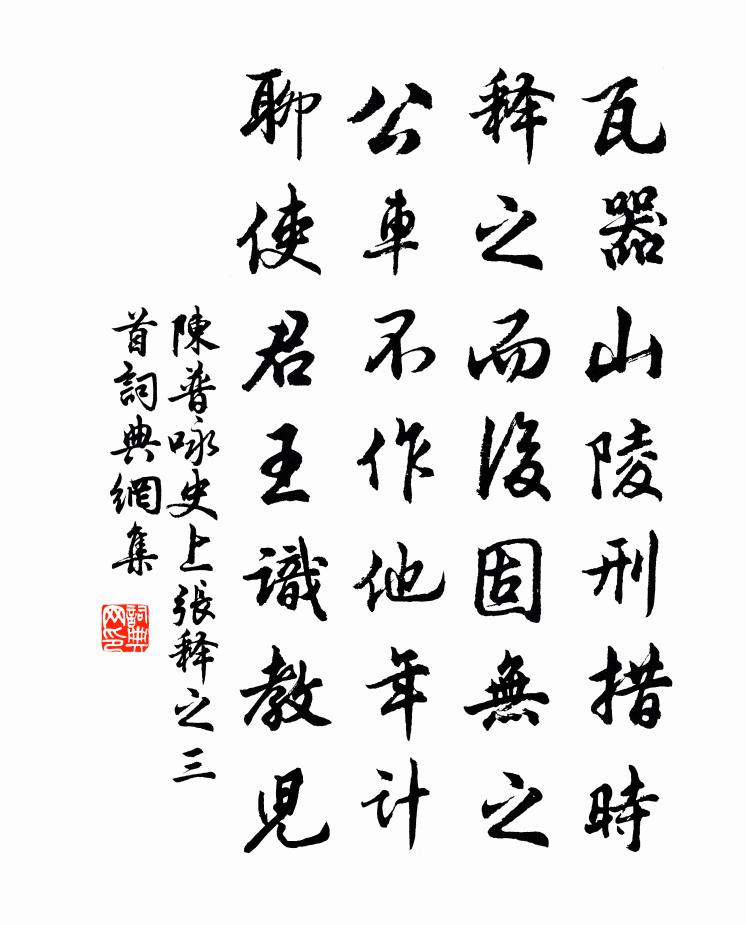 瓦器山陵刑措時
释之而後固無之
公車不作他年計
聊使君王識教児
陳普咏史上張释之三
首詞典網集
詞典
网印